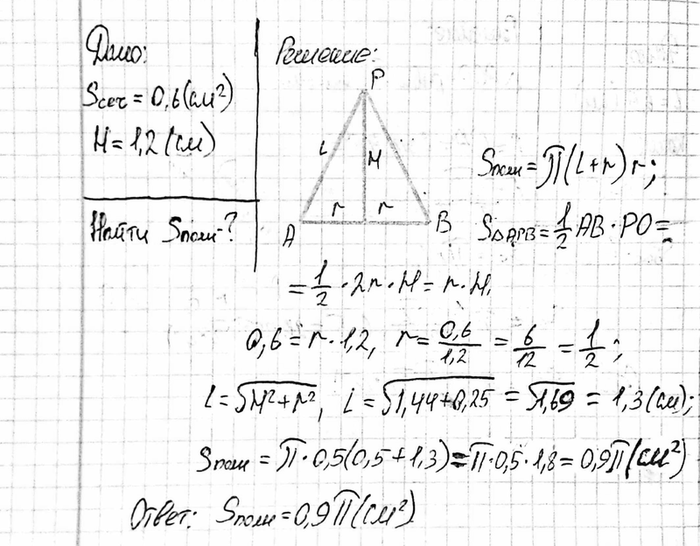 Дано:
Sсеч = 0,6 (см²)
H = 1,2 (см)
Найти Sполн - ?
Решение:
P
L
H
r
r
A
B
Sполн = π(L+r)r;
S△APB = 1/2 AB · PO =
= 1/2 · 2r · H = r · H,
0,6 = r · 1,2, r = 0,6/1,2 = 6/12 = 1/2;
L = √H²+r², L = √1,44+0,25 = √1,69 = 1,3 (см);
Sполн = π · 0,5(0,5+1,3) = π · 0,5 · 1,8 = 0,9π (см²)
Ответ: Sполн = 0,9π (см²)